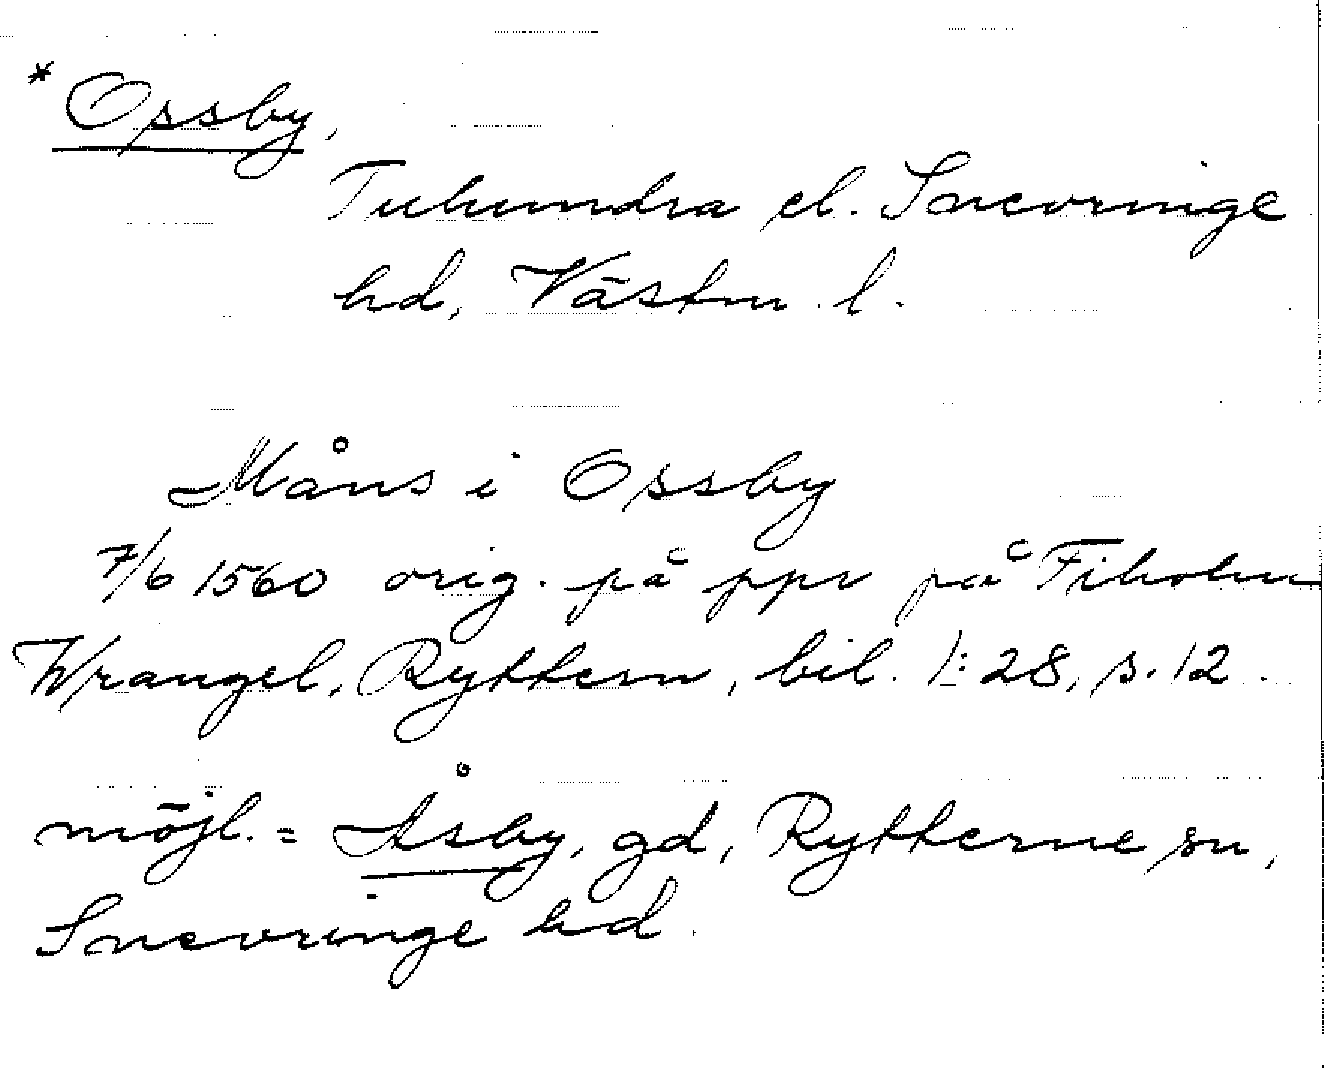 * Ossby,
Tuhundra el. Snevringe
hd, Västm. l.
Måns i Ossby
7/6 1560 orig. på ppr på Fiholm
Wrangel, Ryttern, bil. 1:28, s. 12.
möjl. = Åsby, gd, Rytterne sn,
Snevringe hd.